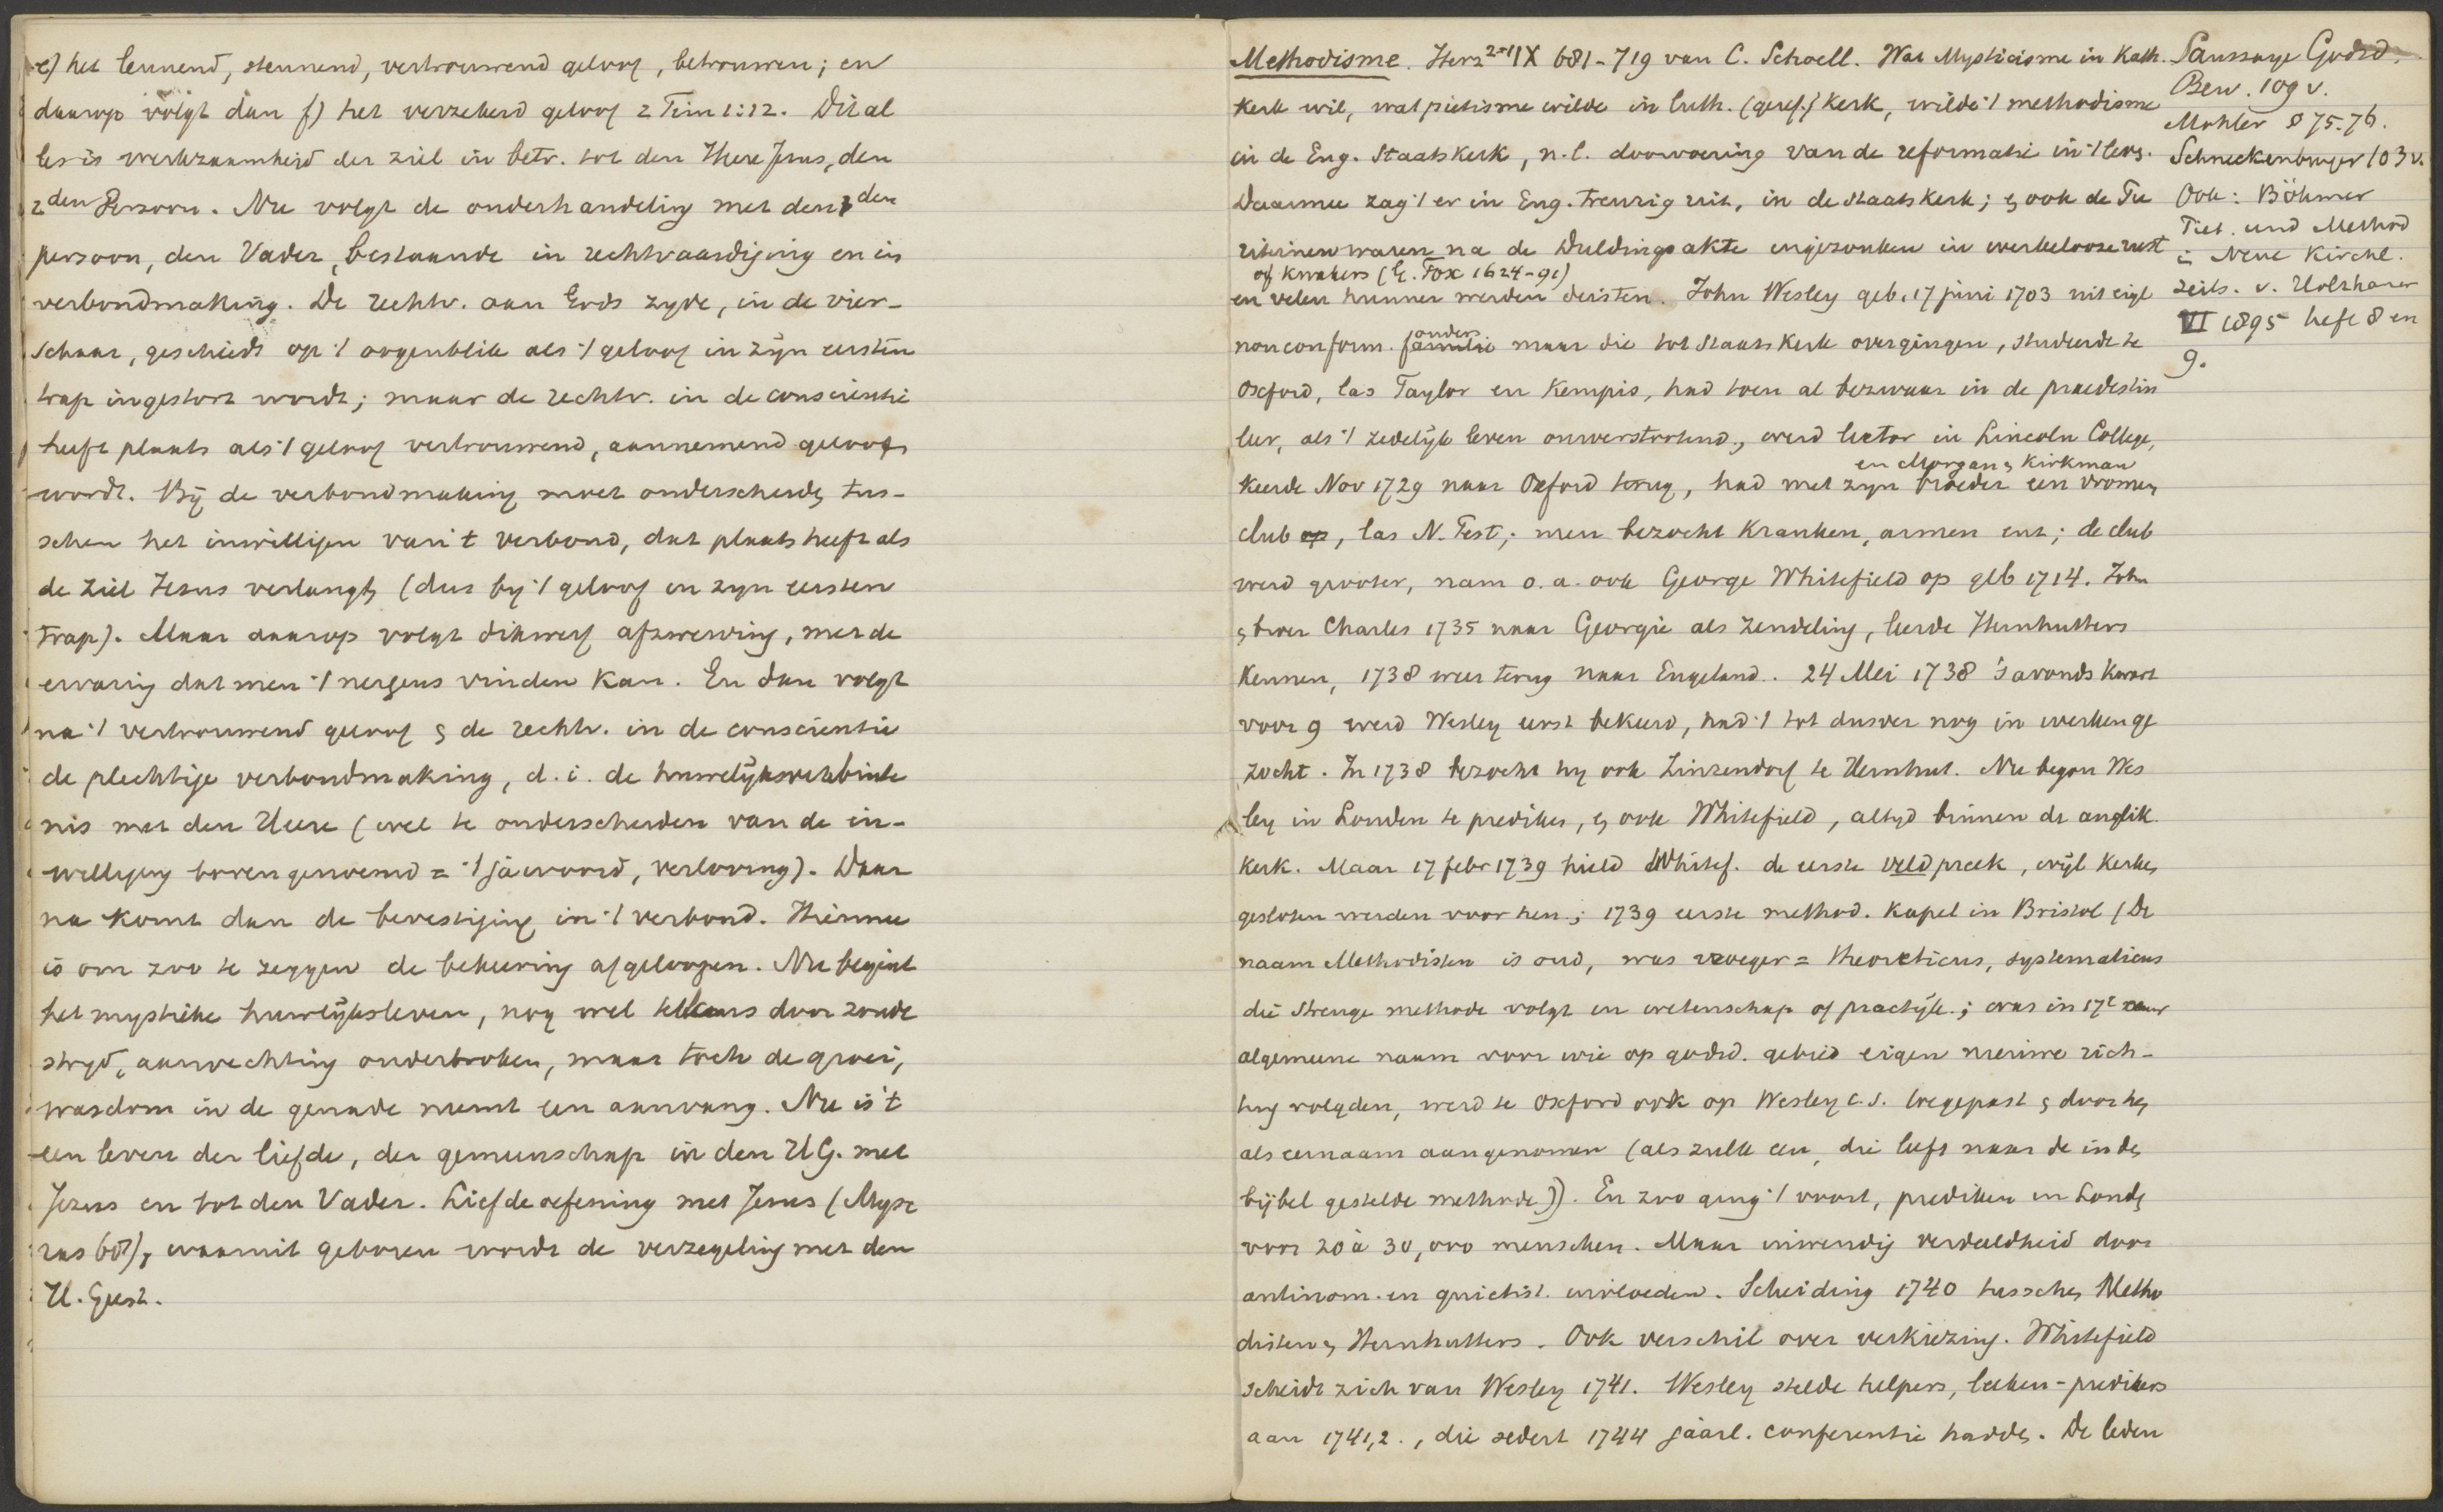 e) het leunend, steunend, vertrouwend geloof, betrouwen; en
daarop volgt dan f) het verzekerd geloof 2 Tim 1:12. Dit al
les is werkzaamheid der ziel in betr. tot den Heere Jesus, den
2den Persoon. Nu volgt de onderhandeling met den 1 den
persoon, den Vader, bestaande in rechtvaardiging en in
verbondmaking. De rechtv. aan Gods zyde, in de vier-
schaar, geschiedt op 't oogenblik als 't geloof in zijn eersten
trap ingestort wordt; maar de rechtv. in de conscientie
heeft plaats als 't geloof vertrouwend, aannemend geloof
wordt. Bij de verbondmaking moet onderscheiden tus-
schen het inwilligen van 't verbond, dat plaats heeft als
de ziel Jezus verlangt, (dus by 't geloof in zyn eersten
trap). Maar daarop volgt dikwerf afzwerving, met de
ervaring dat men 't nergens vinden kan. En dan volgt
na 't vertrouwend geloof & de rechtv. in de conscientie
de plechtige verbondmaking, d. i. de huwelijksverbinte
nis met den Heere (wel te onderscheiden van de in-
williging boven genoemd = 't jawoord, verloving). Daar
na komt dan de bevestiging in 't verbond. Hiermee
is om zoo te zeggen de bekeering afgeloopen. Nu begint
het mystieke huwelijksleven, nog wel telkens door zonde
stryd, aanvechting onderbroken, maar toch de groei,
wasdom in de genade neemt een aanvang. Nu is 't
een leven der liefde, der gemeenschap in den H G. met
Jezus en tot den Vader. Liefdeoefening met Jesus (Myse
ras 68), waaruit geboren wordt de verzegeling met den
H. Geest.
Methodisme. Herz² IX 681-719 van C. Schoell. Wat Mysticisme in Kath.
kerk wil, wat pietisme wilde in luth. (geref.) kerk, wilde 't methodisme
in de Eng. Staatskerk, n.l. doorvoering van de reformatie in 't lev.
Daarmee zag 't er in Eng. treurig uit, in de staatskerk; & ook de Pu
riteinen waren na de Duldingsakte ingezonken in werkelooze rust
of kwakers (G. Fox 1624-91)
en velen hunner werden deisten. John Wesley geb. 17 juni 1703 uit eigl
ouders
nonconform. familie maar die tot staatskerk overgingen, studeerde te
Oxford, las Taylor en Kempis, had toen al bezwaar in de praedestin
leer, als 't zedelijk leven ondermijnend, werd lector in Lincoln College,
en Morgan & Kirkman
keerde Nov 1729 naar Oxford terug, had met zyn broeder een vromen
club op, las N. Test; men bezocht kranken, armen enz; de club
werd grooter, nam o. a. ook George Whitefield op geb 1714. John
& broer Charles 1735 naar Georgie als zendeling, leerde Hernhutters
kennen, 1738 weer terug naar Engeland. 24 Mei 1738 's avonds kwart
voor 9 werd Wesley eerst bekeerd, had 't tot dusver nog in werken ge
zocht. In 1738 bezocht hy ook Zinzendorf te Hernhut. Nu begon Wes
ley in Londen te prediken, & ook Whitefield, altyd binnen de anglik.
kerk. Maar 17 febr 1739 hield Whitef. de eerste veldpreek, wijl kerken
gesloten werden voor hen; 1739 eerste method. kapel in Bristol (De
naam Methodisten is oud, was vroeger = theoreticus, systematicus
die strenge methode volgt in wetenschap of practijk; was in 17e eeuw
algemeene naam voor wie op godsd. gebied eigen nieuwe rich-
ting volgden, werd te Oxford ook op Wesley c.s. toegepast & door hen
als eernaam aangenomen (als zulk een, die leeft naar de in den
bijbel gestelde methode)). En zoo ging 't voort, prediken in Londen
voor 20 à 30,000 menschen. Maar inwendig verdeeldheid door
antinom. en quietist. invloeden. Scheiding 1740 tusschen Metho
disten & Hernhutters. Ook verschil over verkiezing. Whitefield
scheidt zich van Wesley 1741. Wesley stelde helpers, leeken-predikers
aan 1741,2., die sedert 1744 jaarl. conferentie hadden. De leden
Saussaye Godsd.
Bew. 109 v.
Mohler § 75-76.
Schneckenburger 103 v.
Ook: Böhmer
Piet. und Method
in Neue Kirchl.
Zeits. v. Holzhauser
VI 1895 heft 8 en
9.